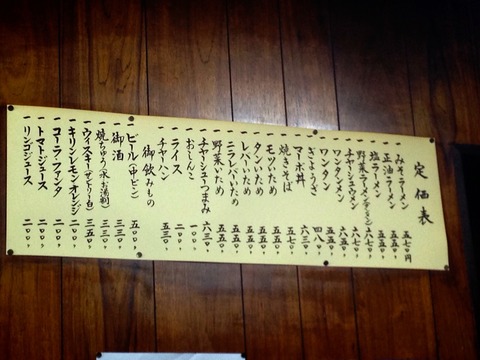 定価表
一 みそラーメン 五七〇円
一 正油ラーメン 五五〇
一 塩ラーメン 五五〇
一 野菜ラーメン 六七〇
一 チャーシューメン 六七〇
一 ワンタンメン 六五〇
一 ワンタン 五五〇
一 ぎょうざ 四八〇
一 マーボ丼 六三〇
一 焼きそば 五七〇
一 モツいため 五五〇
一 タンいため 五五〇
一 レバーいため 五五〇
一 ニラレバーいため 五五〇
一 野菜いため 五五〇
一 チャーシューつまみ 六三〇
一 おしんこ 一〇〇
一 ライス 二〇〇
一 チャーハン 五三〇
御飲みもの
一 ビール(中ビン) 五〇〇
一 御酒 三三〇
一 焼ちゅう(水お湯割) 三三〇
一 ウィスキー(サントリー) 三五〇
一 キリンレモン・オレンジ 二〇〇
一 コーラ・ファンタ 二〇〇
一 トマトジュース 二〇〇
一 リンゴジュース 二〇〇